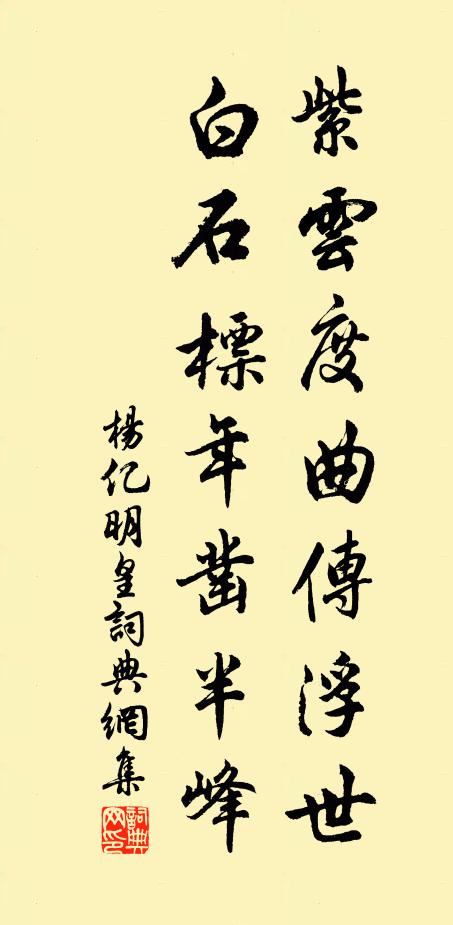 紫雲度曲傳浮世
白石標年鑿半峰
楊亿明皇詞典網集
詞典网印